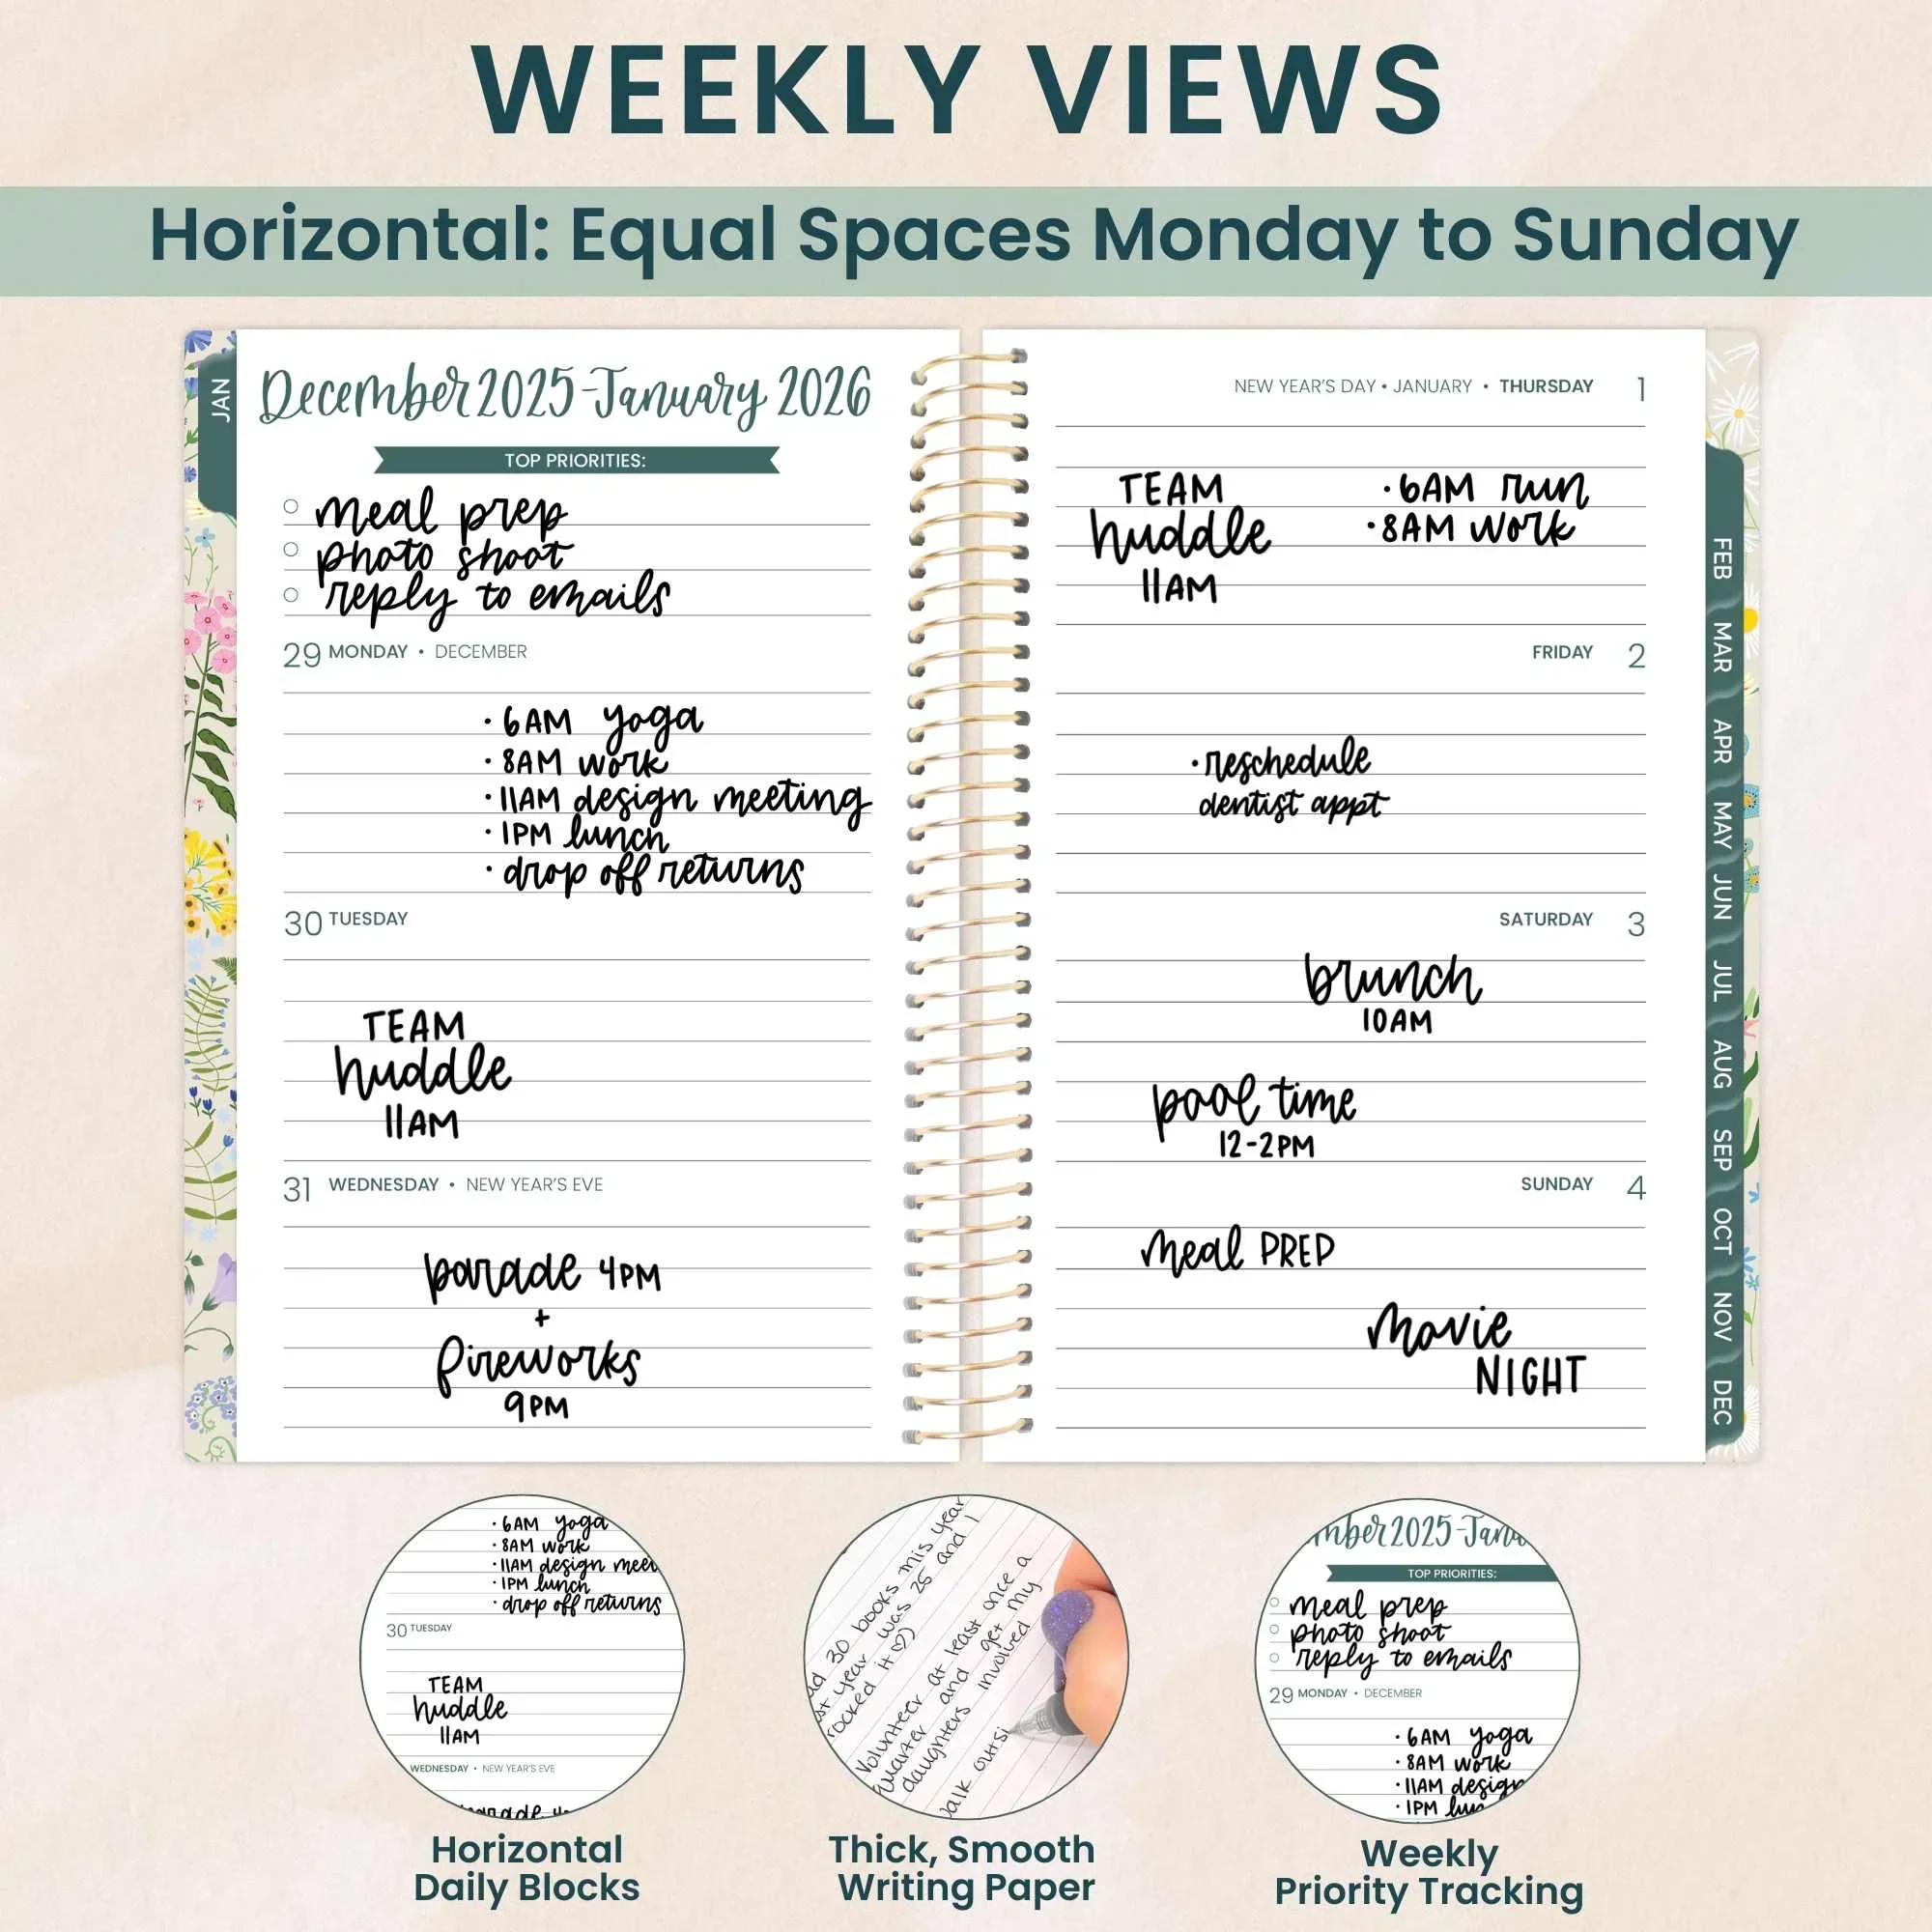 WEEKLY VIEWS
Horizontal: Equal Spaces Monday to Sunday
JAN
December 2025-January 2026
TOP PRIORITIES:
meal prep
photo shoot
reply to emails
29 MONDAY • DECEMBER
• 6AM yoga
• 8AM work
• 11AM design meeting
• 1PM lunch
• drop off returns
30 TUESDAY
TEAM
huddle
11AM
31 WEDNESDAY • NEW YEAR'S EVE
parade 4PM
+
fireworks
9PM
NEW YEAR'S DAY • JANUARY • THURSDAY 1
TEAM
huddle
11AM
• 6AM run
• 8AM work
FRIDAY 2
• reschedule
dentist appt
SATURDAY 3
brunch
10AM
pool time
12-2PM
SUNDAY 4
meal PREP
movie
NIGHT
FEB
MAR
APR
MAY
JUN
JUL
AUG
SEP
OCT
NOV
DEC
• 6AM yoga
• 8AM work
• 11AM design meet
• 1PM lunch
• drop off returns
30 TUESDAY
TEAM
huddle
11AM
WEDNESDAY • NEW YEAR'S EVE
Horizontal
Daily Blocks
30 books this year
year was 25 and I
rocked it ♡)
Volunteer at least once a
quarter and get my
daughters involved
outsi
Thick, Smooth
Writing Paper
mber 2025-Janu
TOP PRIORITIES:
meal prep
photo shoot
reply to emails
29 MONDAY • DECEMBER
• 6AM yoga
• 8AM work
• 11AM design
• 1PM lun
Weekly
Priority Tracking